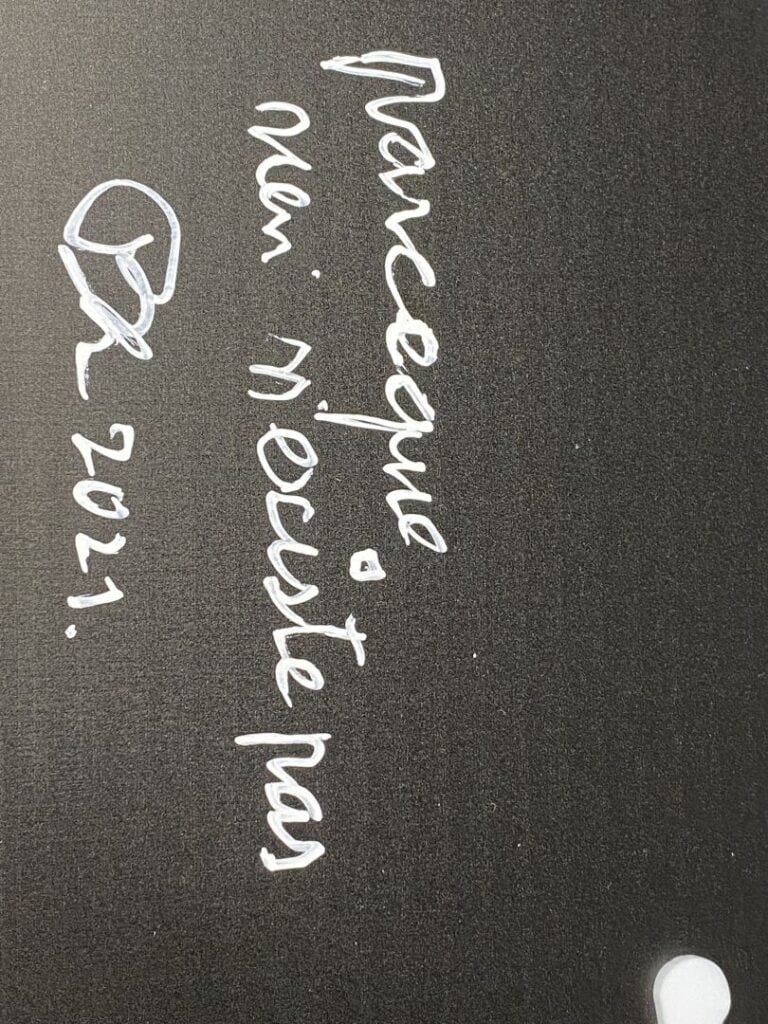 Parceque
rien n'existe pas
2021.